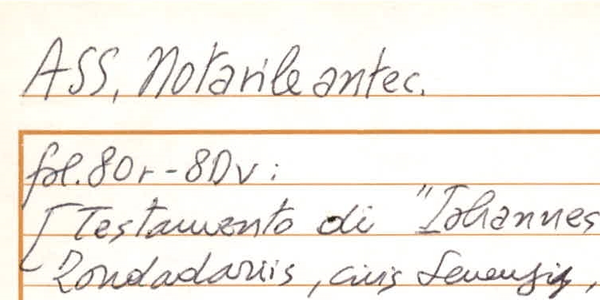 ASS, Notarile antec.
fol. 80r - 80v :
[Testamento di "Iohannes
Zondadariis, civis Senensis,